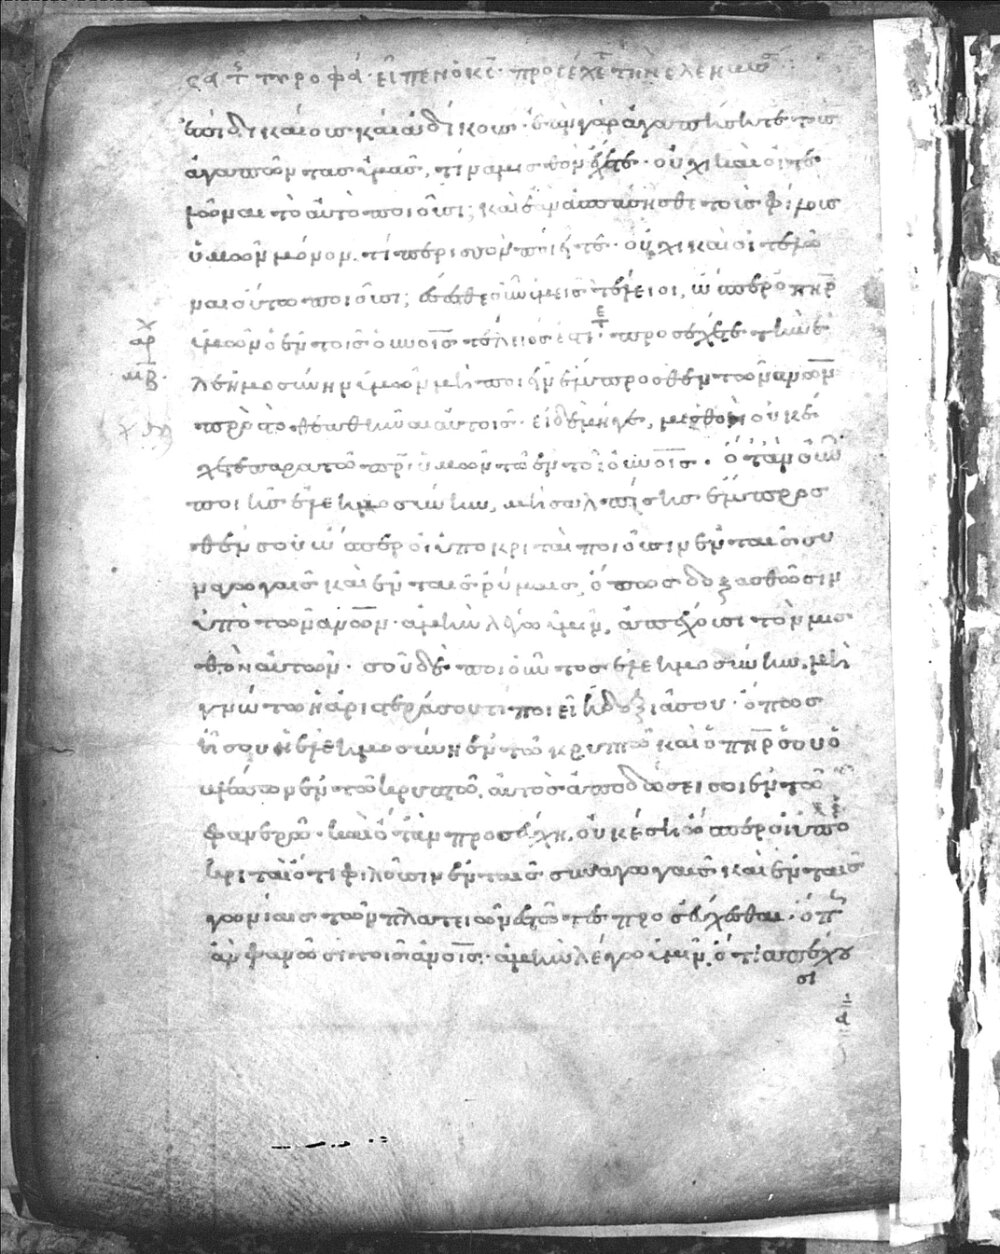 σα τ τυροφά· εἶπεν ὁ κς· προσέχετε τὴν ἐλεημοσ
ἐπὶ δικαίους καὶ ἀδίκους· ἐὰν γὰρ ἀγαπήσητε τοὺς
ἀγαπῶντας ὑμᾶς, τίνα μισθὸν ἔχετε· οὐχὶ καὶ οἱ τε
λῶναι τὸ αὐτὸ ποιοῦσι; καὶ ἐὰν ἀσπάσησθε τοὺς φίλους
ὑμῶν μόνον, τί περισσὸν ποιεῖτε· οὐχὶ καὶ οἱ τελῶ
ναι οὕτω ποιοῦσι; ἔσεσθε οὖν ὑμεῖς τέλειοι, ὥσπερ ὁ πηρ
ὑμῶν ὁ ἐν τοῖς οὐνοῖς τέλειός ἐστι· προσέχετε τὴν ἐ
λεημοσύνην ὑμῶν μὴ ποιεῖν ἔμπροσθεν τῶν ανων
πρὸς τὸ θεαθῆναι αὐτοῖς· εἰ δὲ μήγε, μισθὸν οὐκ ἔ
χετε παρὰ τῶ πρι ὑμῶν τῶ ἐν τοῖς οὐνοῖς· ὅταν οὖν
ποιῆς ἐλεημοσύνην, μὴ σαλπίσης ἔμπροσ
θέν σου ὥσπερ οἱ ὑποκριταὶ ποιοῦσιν ἐν ταῖς συ
ναγωγαῖς καὶ ἐν ταῖς ῥύμαις, ὅπως δοξασθῶσιν
ὑπὸ τῶν ανων· ἀμὴν λέγω ὑμῖν, ἀπέχουσι τὸν μισ
θὸν αὐτῶν· σοῦ δὲ ποιοῦντος ἐλεημοσύνην, μὴ
γνώτω ἡ ἀριστερά σου τί ποιεῖ ἡ δεξιά σου· ὅπως
ἦ σου ἡ ἐλεημοσύνη ἐν τῶ κρυπτῶ καὶ ὁ πηρ σου ὁ
βλέπων ἐν τῶ κρυπτῶ, αὐτὸς ἀποδώσει σοι ἐν τῶ
φανερῶ· καὶ ὅταν προσεύχη, οὐκ ἔση ὥσπερ οἱ ὑπο
κριταὶ ὅτι φιλοῦσιν ἐν ταῖς συναγωγαῖς καὶ ἐν ταῖς
γωνίαις τῶν πλατειῶν ἑστῶτες προσεύχεσθαι· ὅπ
ἂν φανῶσι τοῖς ανοις· ἀμὴν λέγω ὑμῖν, ὅτι ἀπέχου
σι